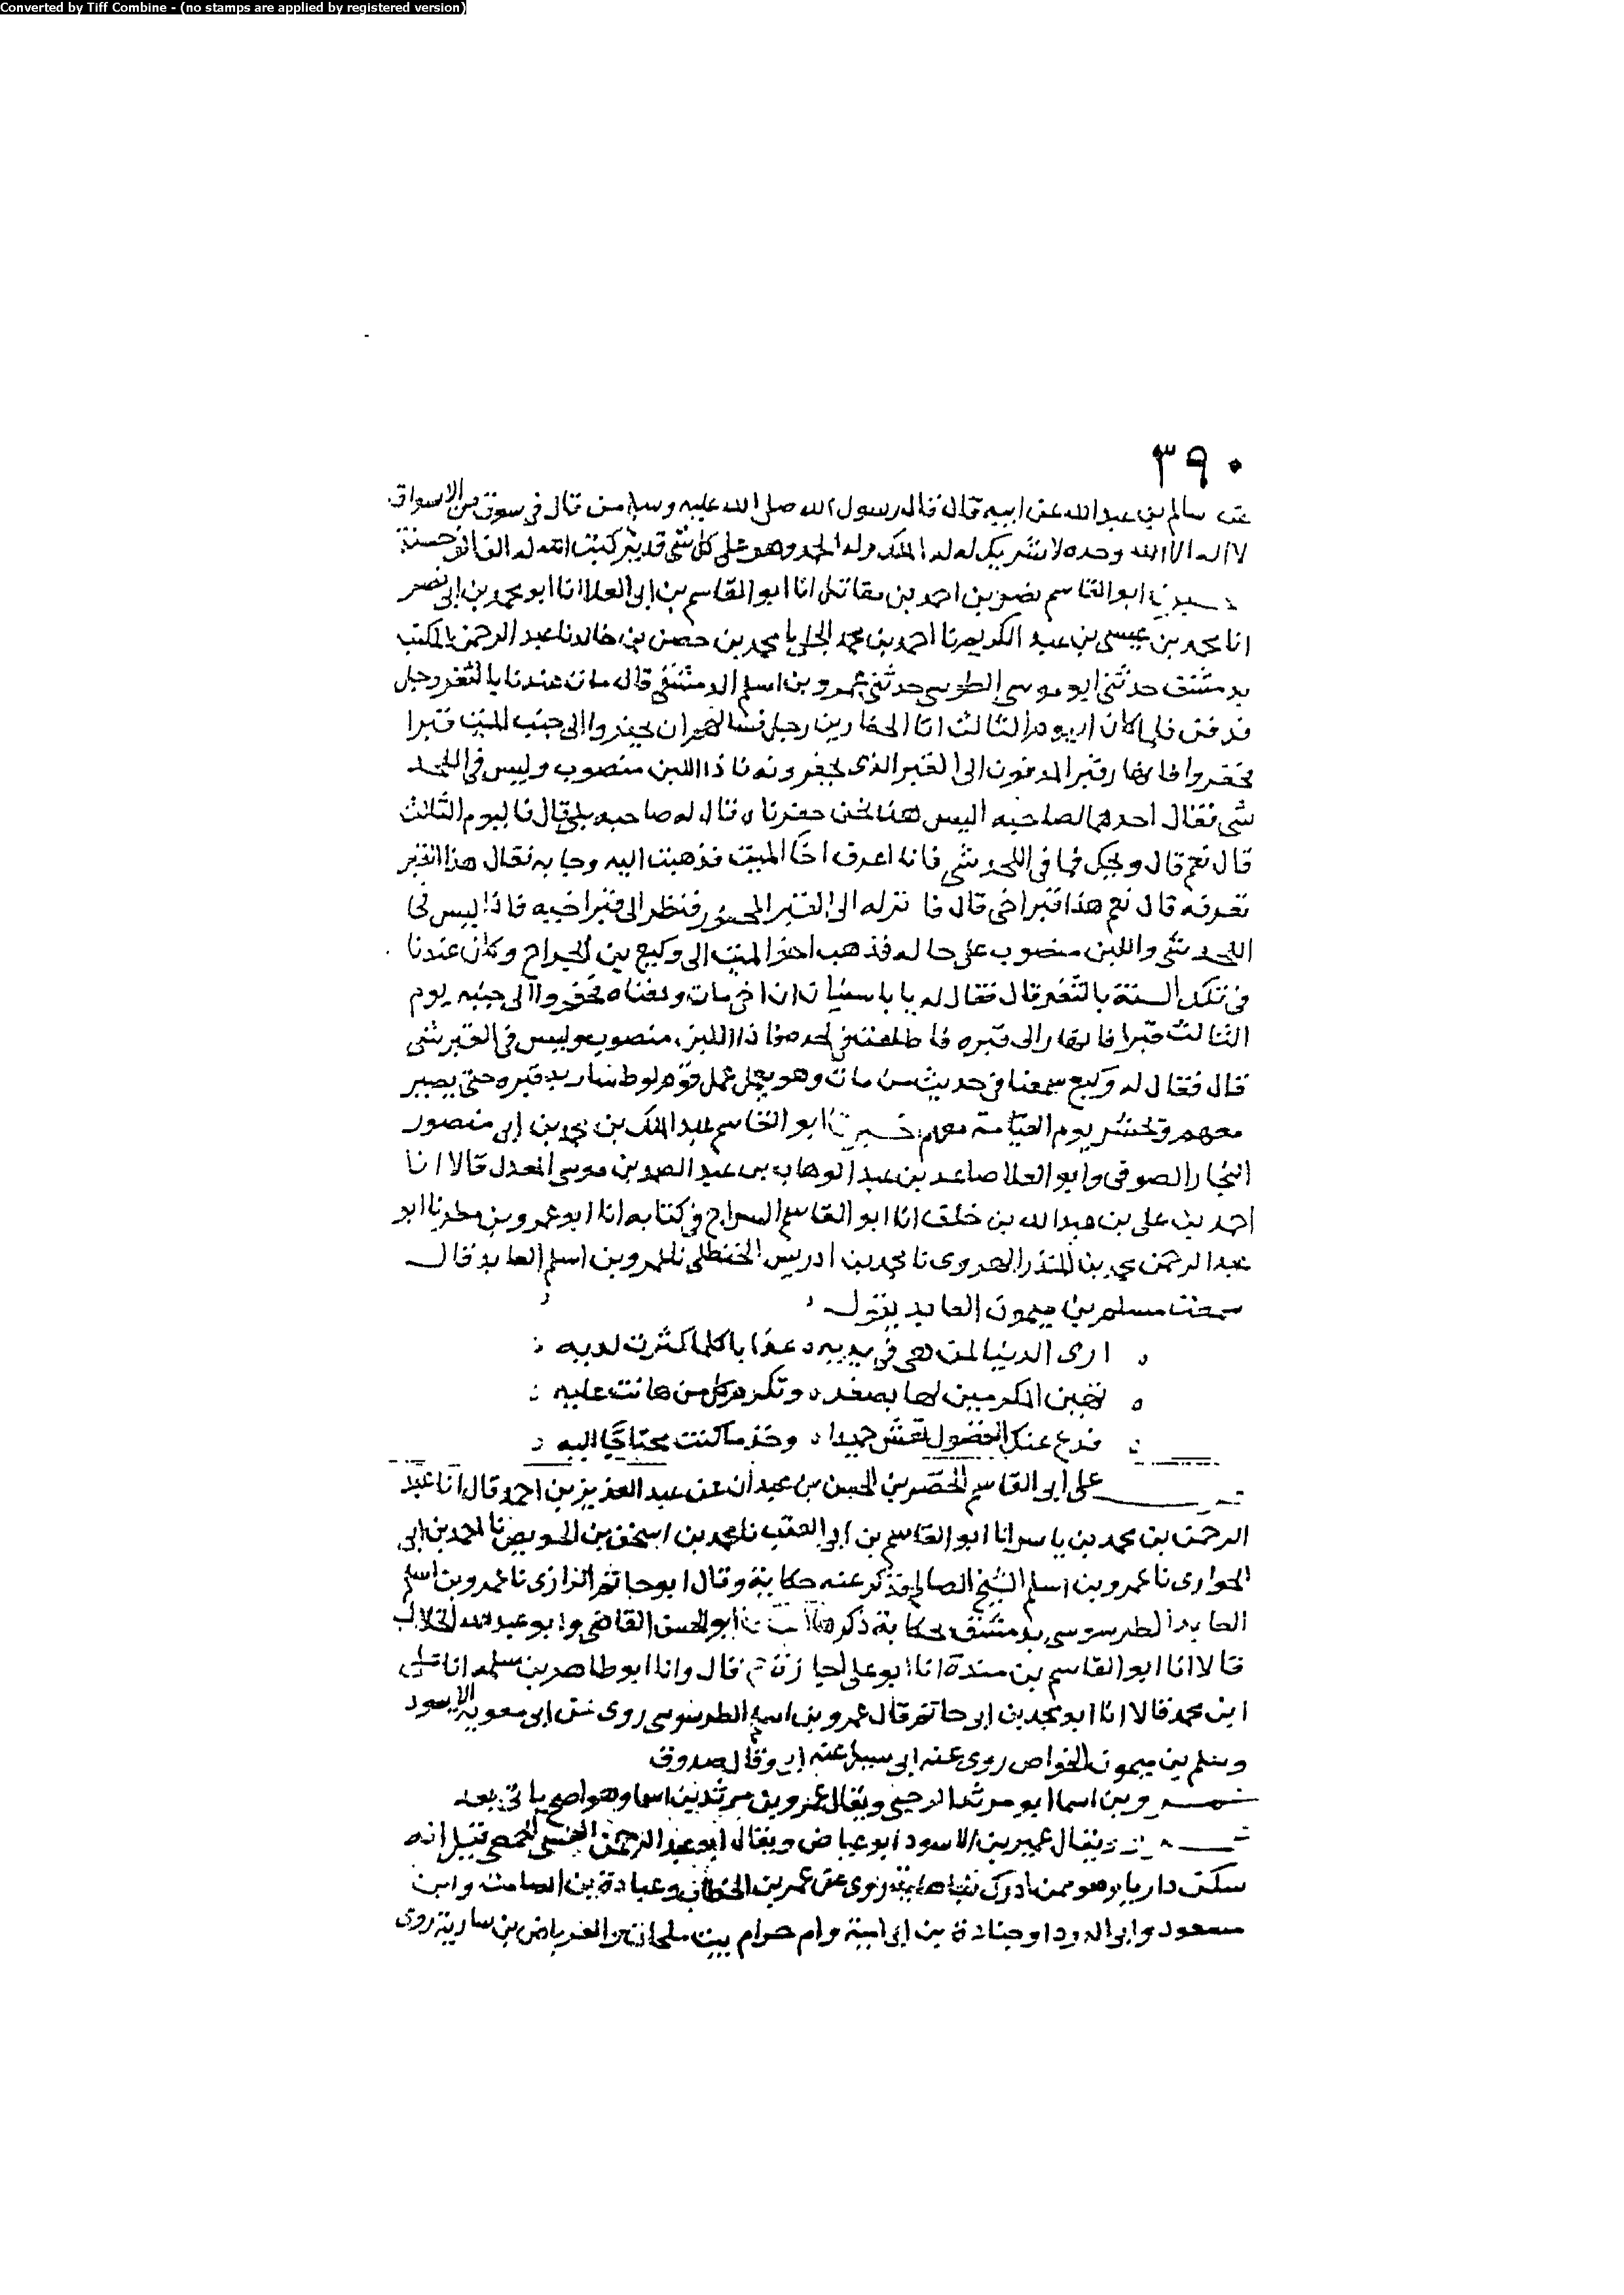 Converted by Tiff Combine - (no stamps are applied by registered version)
٣٩٠
عن سالم بن عبد الله عن ابيه قال قال رسول الله صلى الله عليه وسلم من قال في سوق من الاسواق
لا اله الا الله وحده لا شريك له له الملك وله الحمد وهو على كل شي قدير كتبت الله له الفا الف حسنة
ابو القاسم نصر بن احمد بن مقاتل انا ابو القاسم بن ابي العلا انا ابو محمد بن ابي نصر
انا محمد بن عيسى بن عبد الكريم نا احمد بن محمد الجلي نا محمد بن حصن بن خالد نا عبد الرحمن المكتب
بدمشق حدثني ابو موسى الطوسي حدثني عمرو بن اسلم الدمشقي قال مات عندنا بالثغر رجل
فدفن فلما كان اليوم الثالث اتا الحفارين رجل فسالهم ان يحفروا الى جنب الميت قبرا
فحفروا فانهار قبر المدفون الى القبر الذي يحفرونه فاذا اللبن منصوب وليس في اللحد
شي فقال احدهما لصاحبه اليس هذا نحن حفرناه قال له صاحبه بلى قال فاليوم الثالث
قال نعم قال ويحك فما في اللحد شي فانا اعرف اخا الميت فذهبت اليه وجا به فقال هذا القبر
تعرفه قال نعم هذا قبر اخي قال فانزله الى القبر المحفور فنظر الى قبر اخيه فاذا ليس في
اللحد شي واللبن منصوب على حاله فذهب اخو الميت الى وكيع بن الجراح وكان عندنا
في تلك السنة بالثغر قال فقال له يا با سفيان ان اخي مات ودفناه فحفروا الى جنبه يوم
الثالث قبرا فانهار الى قبره فاطلعت في لحده فاذا اللبن منصوب وليس في القبر شي
قال فقال له وكيع سمعنا في حديث من مات وهو يعمل عمل قوم لوط سار به قبره حتى يصير
معهم ويحشر يوم القيامة معهم ابو القاسم عبد الملك بن محمد بن ابي منصور
النجار الصوفي وابو العلا صاعد بن عبد الوهاب بن عبد الصمد بن موسى المعدل قالا انا
احمد بن علي بن عبد الله بن خلف انا ابو القاسم السراج في كتابه انا ابو عمرو بن مطر نا ابو
عبد الرحمن محمد بن المنذر الهروي نا محمد بن ادريس الحنظلي نا عمرو بن اسلم العابد قال
سمعت مسلم بن ميمون العابد يقول
ارى الدنيا لمن هي في يديه ه عذابا كلما كثرت لديه
تهين المكرمين لها بصغر ه وتكرم كل من هانت عليه
فدع عنك الفضول تعش حميدا ه وخذ ما كنت محتاجا اليه
على ابي القاسم الخضر بن الحسن بن عبدان عن عبد العزيز بن احمد قال انا عبد
الرحمن بن محمد بن ياسر انا ابو القاسم بن ابي العقب نا محمد بن اسحق بن الحويص نا احمد بن ابي
الحواري نا عمرو بن اسلم الشيخ الصالح فذكر عنه حكاية وقال ابو حاتم الرازي نا عمرو بن اسلم
العابد الطرسوسي بدمشق بحكاية ذكرها ابو الحسن القاضي وابو عبد الله الخلال
قالا انا ابو القاسم بن مندة انا ابو علي اجازة ح قال وانا ابو طاهر بن سلمه انا علي
ابن محمد قالا انا ابو محمد بن ابي حاتم قال عمرو بن اسلم الطرسوسي روى عن ابي معوية الاسود
وسلم بن ميمون الخواص روى عنه ابي سيل عنه ابي وقال صدوق
عمرو بن اسما ابو مرثد الرحبي ويقال عمرو بن مرثد بن اسما وهو اصح ياتي بعد
ويقال عمير بن الاسود ابو عياض ويقال ابو عبد الرحمن العنسي الحمصي قيل انه
سكن داريا وهو ممن ادرك الجاهلية روى عن عمر بن الخطاب وعبادة بن الصامت وابن
مسعود وابي الدردا وجنادة بن ابي امية وام حرام بنت ملحان والعرباض بن سارية روى